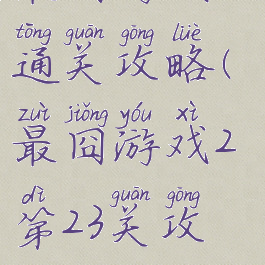 tōng guān gōng lüè
通关攻略(
zuì jiǒng yóu xì
最囧游戏2
dì guān gōng
第23关攻